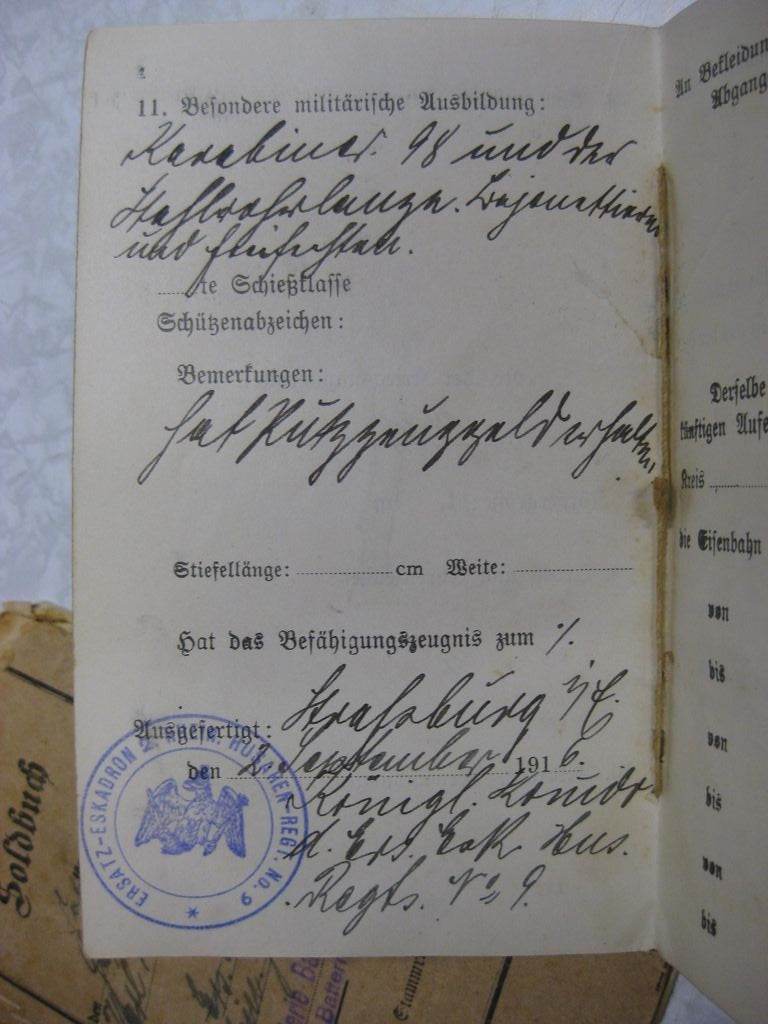 4
11. Besondere militärische Ausbildung:
Karabiner 98 und der
Stahlrohrlanze. Bajonettieren
und
......te Schießklasse
Schützenabzeichen:
Bemerkungen:
hat Putzzeuggeld erhalten
Stiefellänge: ............ cm Weite: ............
Hat das Befähigungszeugnis zum ./.
Ausgefertigt: Strassburg i/E.
den 2. September 1916.
Königl. Komdo
d. Ers. Esk. Hus.
Regts. No 9.
ERSATZ-ESKADRON 2. RHEIN. HUSAREN-REGT. NO. 9
An Bekleidun
Abgang
Derselbe
künftigen Aufe
Kreis ......
die Eisenbahn
von
bis
von
bis
von
bis
Soldbuch
den
Batter
Stammr